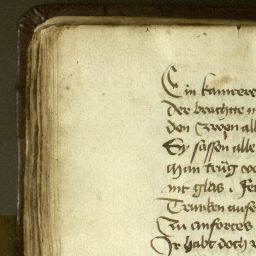 Ein kamrere
Der brachtte
den zwon all
Sy sässen alle
man trüg
mt glas . 
Trunken
Zu anfortes
Ir habt doch